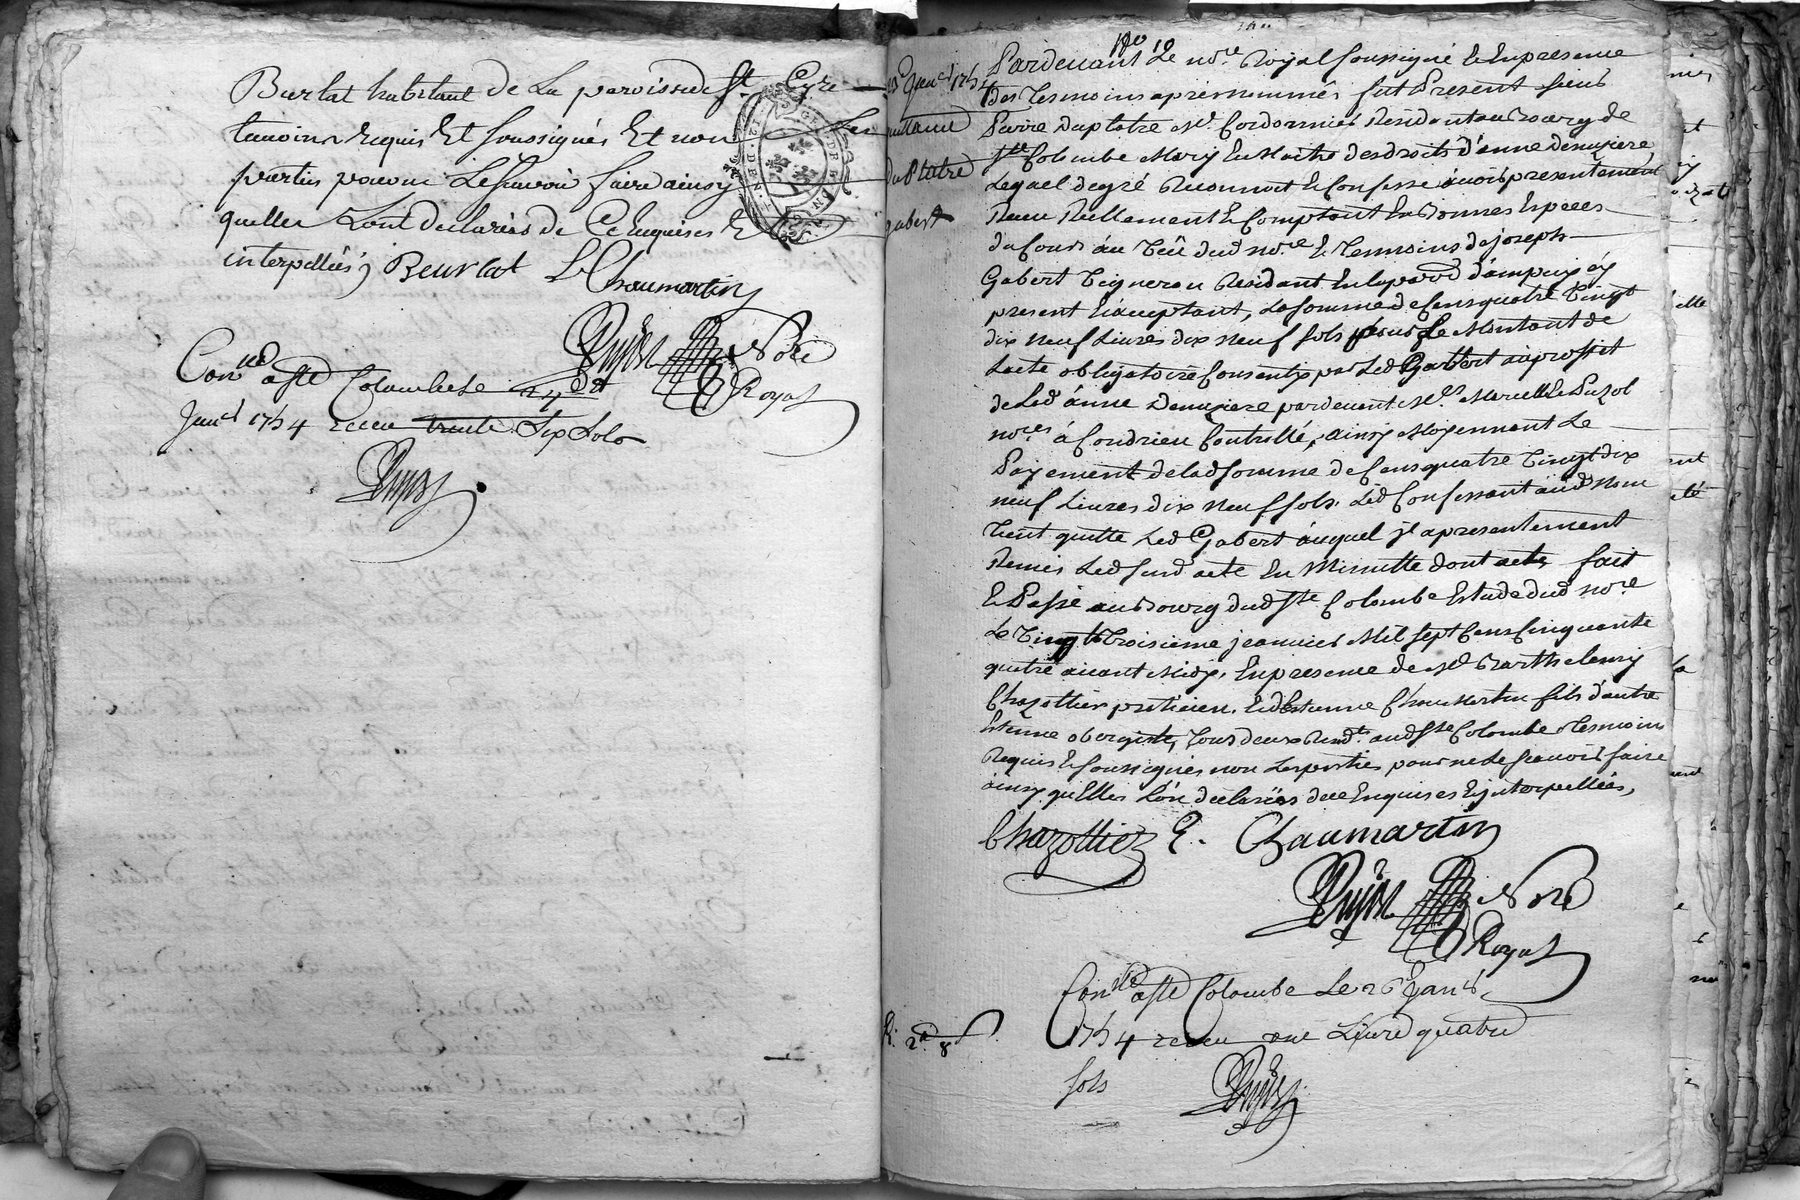 Burlat habitant de La paroisse de St Cyre
temoins requis Et soussignés Et non Les
parties pour ne Le scavoir faire ainsy
quelles L'ont declarées de Ce Enquises Et
interpellées, Beurlat E Chaumartin
Pujol Nore
Royal
Conllé a Ste Colombe le 24 dt
Janer 1754 receu trente Six Sols
Pujol
No 19
23e Janer 1754
quittance
duPlatre
gabert
Pardevant Le nore Royal soussigné Et En presence
des Tesmoins apres nommés fut Present sieur
Pierre Duplatre Me Cordonnier Résidant au Bourg de
Ste Colombe Mary En Maitre des droits d'anne demeziere
Lequel de gré Reconnoit Et Confesse avoir presentement
Receu Reellement Et Comptant En Bonnes Especes
du Cours au Veü dud nore Et Temoins de joseph
Gabert Vigneron Residant En la parr d'ampuix icy
present Et acceptant, La somme de Cens quatre Vingt
dix neuf Livres dix neuf sols pour Le Montant de
Lacte obligatoire Consenty par Led Gabert au proffit
de Lad anne Demeziere pardevant Me Marcel Et Puzol
nores á Condrieu Controllé, ainsy Moyennant Le
Payement de lad somme de Cens quatre Vingt dix
neuf Livres dix neuf sols Led Confessant aud nom
Tient quitte Led Gabert auquel jl a presentement
Remis Led susd acte En Minutte dont acte fait
Et Passé au Bourg dud Ste Colombe Estude dud nore
Le Vingt troisieme jeanvier Mil sept Cens Cinquante
quatre avant Midy, En presence de Me Barthelemy
Chazottier praticien, Et d'Estienne Chaumartin fils d'autre
Etienne obergiste, tous deux Residts aud Ste Colombe Tesmoins
Requis Et soussignés non Les parties pour ne Le scavoir faire
ainsy quElles L'on declarées de ce Enquises Et jnterpellées,
Chazottier E. Chaumartin
Pujol Nore
Royal
Conllé a Ste Colombe Le 26 Janer
1754 receu une Livre quatre
sols
R. 2ll 8s
Pujol